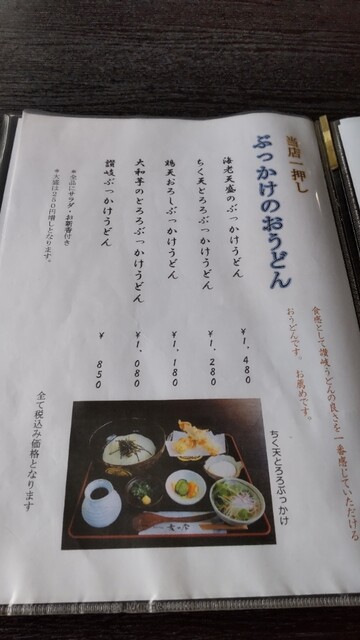 当店一押し
ぶっかけのおうどん
食感として讃岐うどんの良さを一番感じていただける
おうどんです。お薦めです。
海老天盛のぶっかけうどん ¥1,480
ちく天とろろぶっかけうどん ¥1,280
鶏天おろしぶっかけうどん ¥1,180
大和芋のとろろぶっかけうどん ¥1,080
讃岐ぶっかけうどん ¥850
*全品にサラダ・お新香付き
*大盛は250円増しとなります。
ちく天とろろぶっかけ
全て税込み価格となります